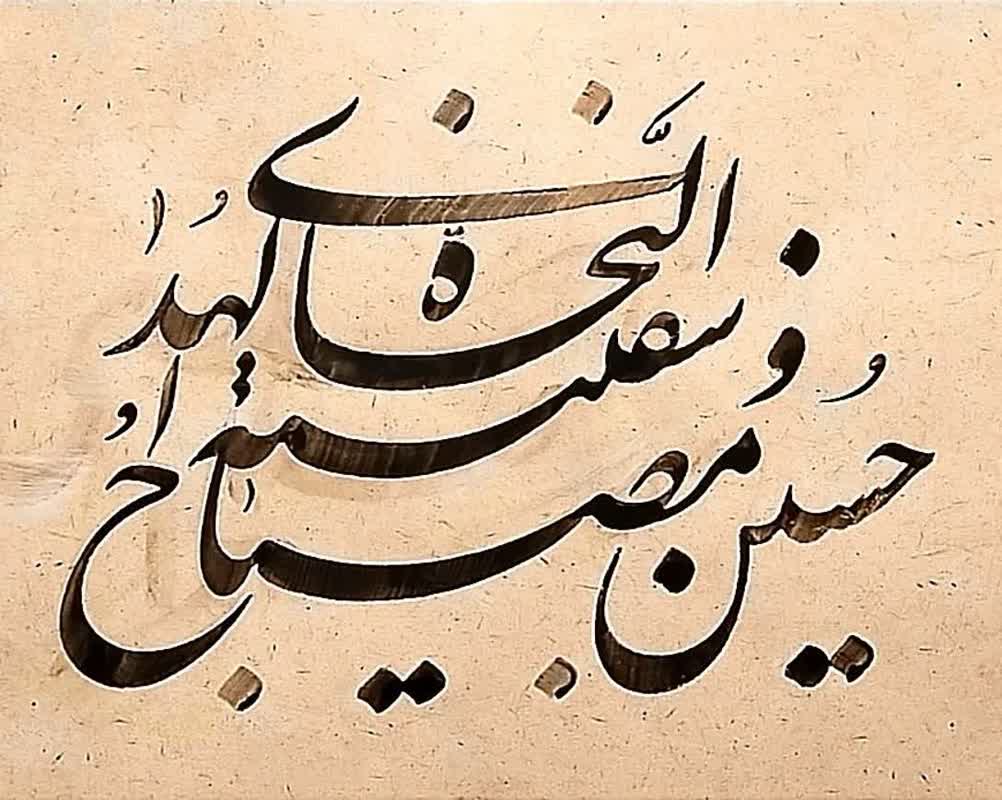 حسین مصباح الهدی
و سفینة
النجاة